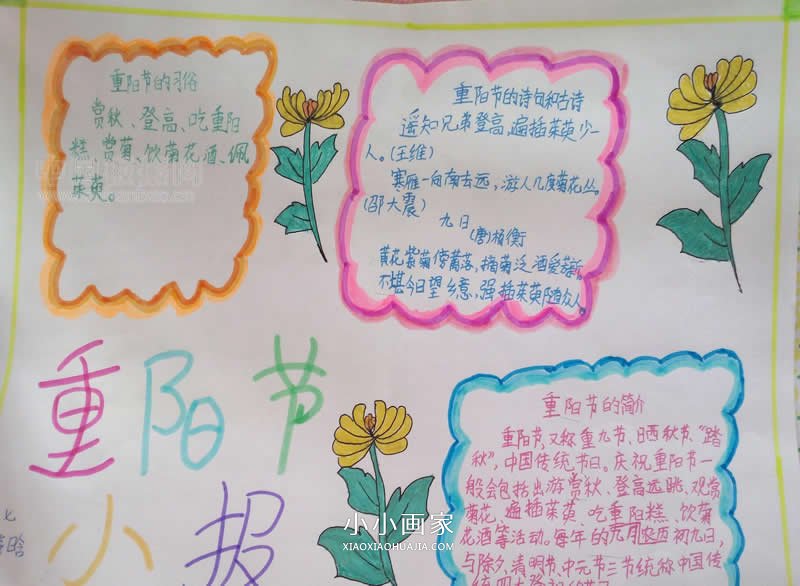 重阳节的习俗
赏秋、登高、吃重阳
糕、赏菊、饮菊花酒、佩
茱萸。
重阳节的诗句和古诗
遥知兄弟登高,遍插茱萸少一
人。(王维)
寒雁一向南去远,游人几度菊花丛。
(邵大震)
九日
(唐)杨衡
黄花紫菊傍篱落,摘菊泛酒爱芳新。
不堪今日望乡意,强插茱萸随众人。
重阳节
小报
重阳节的简介
重阳节,又称重九节、晒秋节、“踏
秋”,中国传统节日。庆祝重阳节一
般会包括出游赏秋、登高远眺、观赏
菊花、遍插茱萸、吃重阳糕、饮菊
花酒等活动。每年的九月农历初九日,
与除夕、清明节、中元节三节统称中国传
小小画家
XIAOXIAOHUAJIA.COM